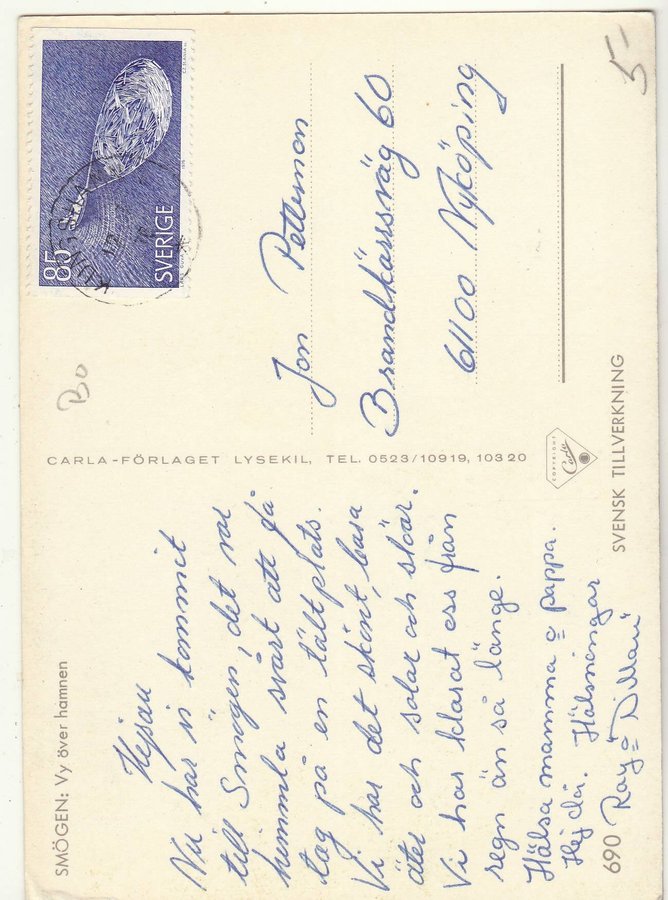 SMÖGEN: Vy över hamnen
Hejsan
Nu har vi kommit
till Smögen, det var
himmla svårt att få
tag på en tältplats.
Vi har det skönt, bara
äter och solar och slöar.
Vi har klarat oss från
regn än så länge.
Hälsa mamma o pappa.
Hej då. Hälsningar
Ray o
690
CARLA-FÖRLAGET LYSEKIL, TEL. 0523/10919, 10320
COPYRIGHT
Carla
SVENSK TILLVERKNING
85
SVERIGE
Jon Petterson
Brandkärrsväg 60
61100 Nyköping
5-